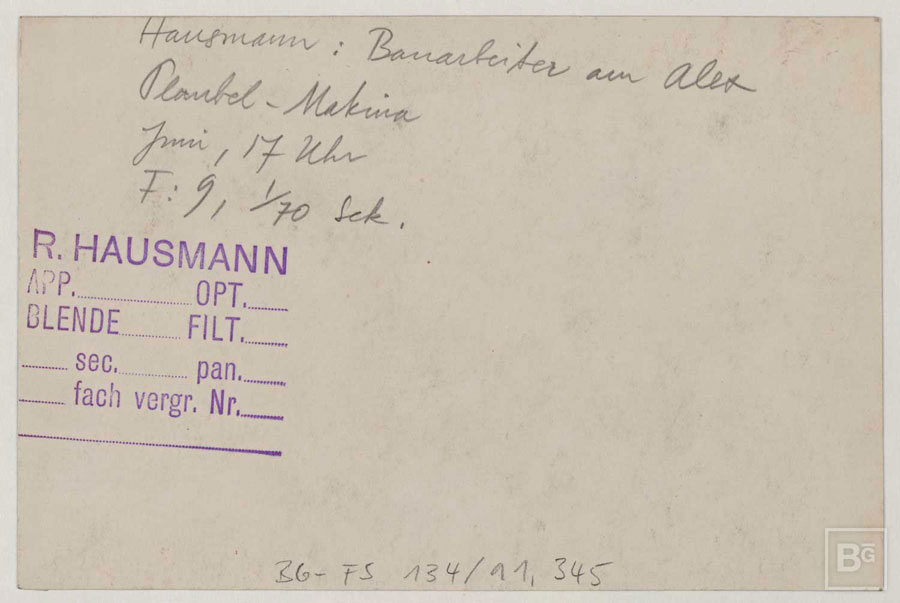 Hausmann : Bauarbeiter am Alex
Plaubel - Makina
Juni, 17 Uhr
F: 9, 1/70 Sek.
R. HAUSMANN
APP. OPT.
BLENDE FILT.
sec. pan.
fach vergr. Nr.
BG - FS 134/91, 345
BG